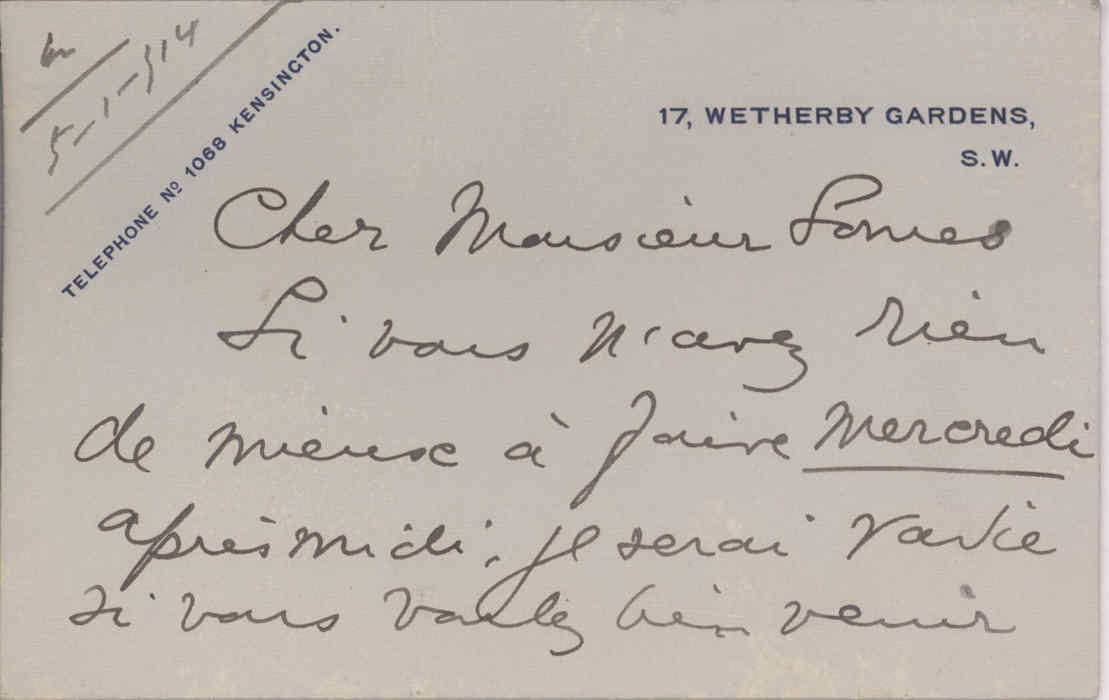 5-1-314
TELEPHONE Nº 1068 KENSINGTON.
17, WETHERBY GARDENS,
S.W.
Cher Monsieur
Si vous n'avez rien
de mieux à faire Mercredi
après midi, je serai ravie
si vous voulez bien venir